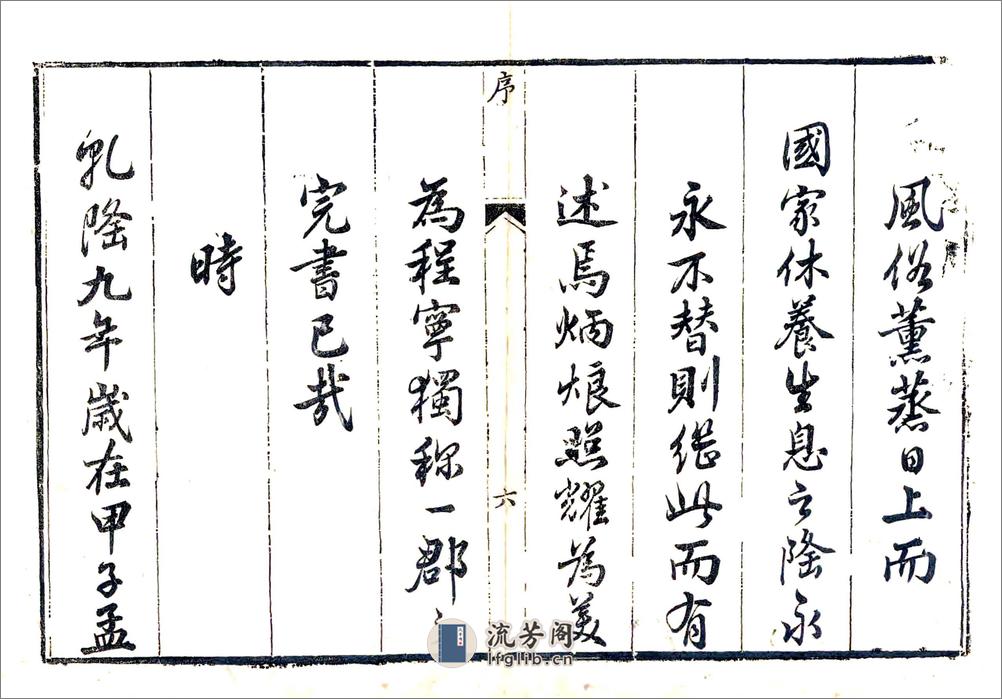 風俗薰蒸日上而
國家休養生息之隆永
永不替則繼此而有
述焉炳烺照耀為美
序
六
為程寧獨稱一郡之
完書已哉
時
乹隆九年歲在甲子孟
流芳阁
lfglib.cn